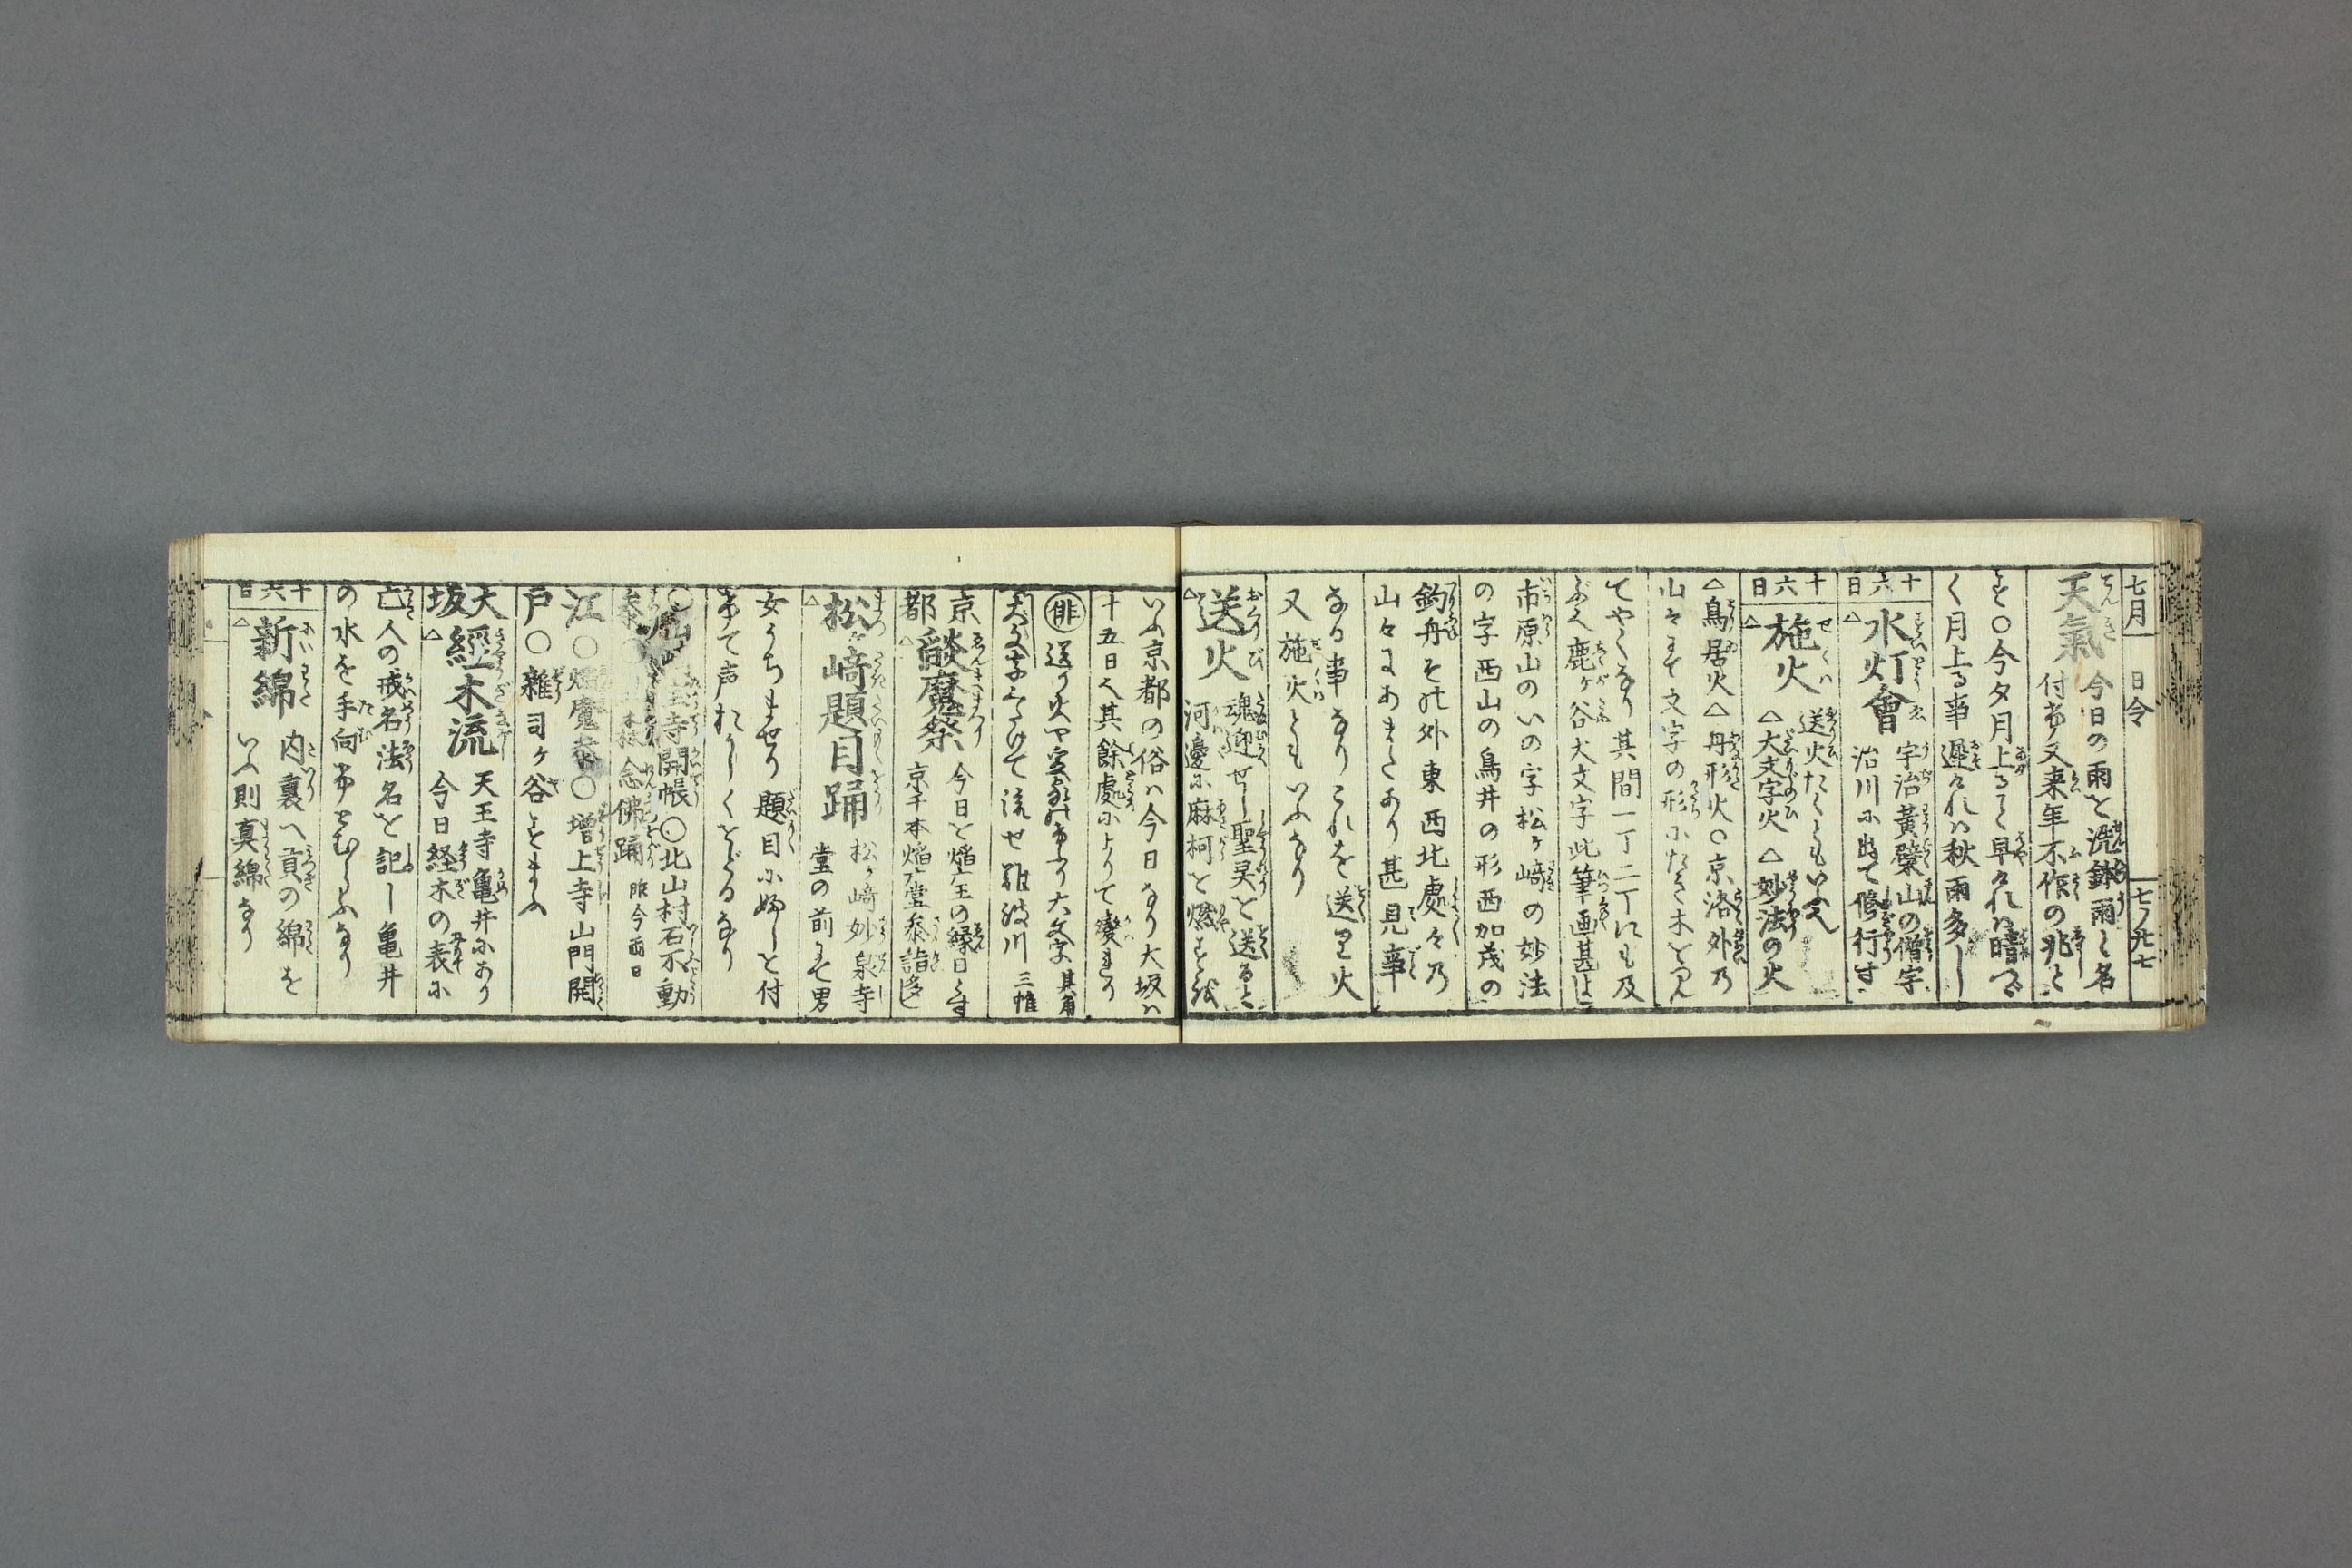 七月 日令 七ノ廿七
天氣 今日の雨を洗鉢雨と名
付ㇰ又来年不作の兆と
す○今夕月上る事早けれは晴つゞ
く月上る事遅けれハ秋雨多し
十六日 水灯會 宇治黄檗山の僧宇
治川に出て修行す
十六日 施火 送火たくともいへ
△大文字火△妙法の火
△鳥居火△舟形火○京洛外の
山々にて文字の形にたき木をつん
てやくなり其間一丁二丁にも及
ぶ鹿ヶ谷大文字此筆画甚
市原山のいの字松ヶ﨑の妙法
の字西山の鳥井の形西加茂の
釣舟その外東西北處々の
山々にあまたあり甚見事
なる事なりこれを送り火
又施火ともいふなり
送火 魂迎せし聖灵を送ると
河邊に麻柯を燃すを
いふ京都の俗ハ今日なり大坂ハ
十五日又其餘處によりて變れり
俳 送り火や 大文字 其角
大文字 て流せ難波川 三惟
京都 燄魔祭 今日を焔广王の縁日とす
京千本焔广堂参詣多し
松ヶ﨑題目踊 松ヶ﨑妙泉寺
堂の前にて男
女うちまぜり題目に婦しを付
て声おかしくをどるなり
寺開帳○北山村石不動
参 念佛踊 昨今両日
江戸 ○焔魔参○増上寺山門開
○雑司ヶ谷
大坂 經木流 天王寺亀井にあり
今日経木の表に
亡人の戒名法名を記し亀井
の水を手向 とむらふなり
十六日 新綿 内裏へ貢の綿を
いふ則真綿なり